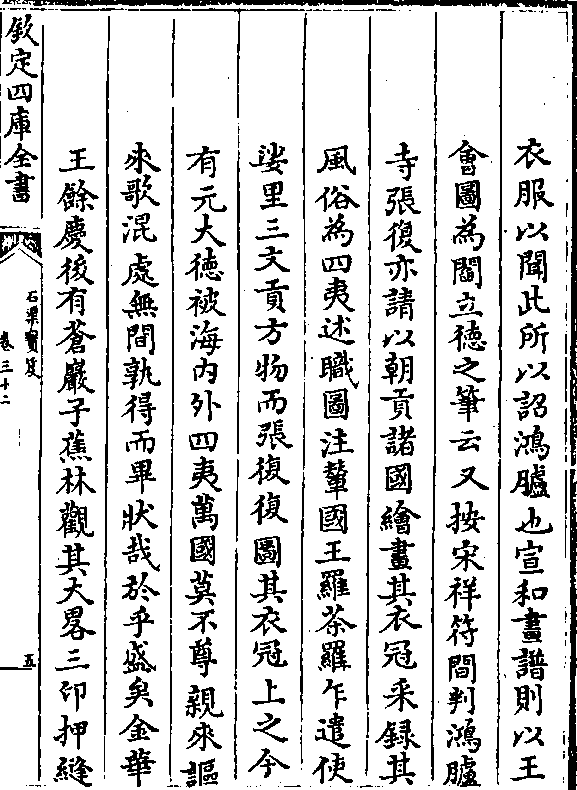 衣服以聞此所以詔鴻臚也宣和畫譜則以王
會圖為閻立德之筆云又按宋祥符間判鴻臚
寺張復亦請以朝貢諸國繪畫其衣冠采録其
風俗為四夷述職圖注輦國王羅茶羅乍遣使
娑里三文貢方物而張復復圖其衣冠上之今
有元大德被海内外四夷萬國莫不尊親來謳
來歌混處無間孰得而畢狀哉於乎盛矣金華
王餘慶後有蒼巖子蕉林觀其大畧三印押縫
欽定四庫全書
石渠寳笈
卷三十二
五